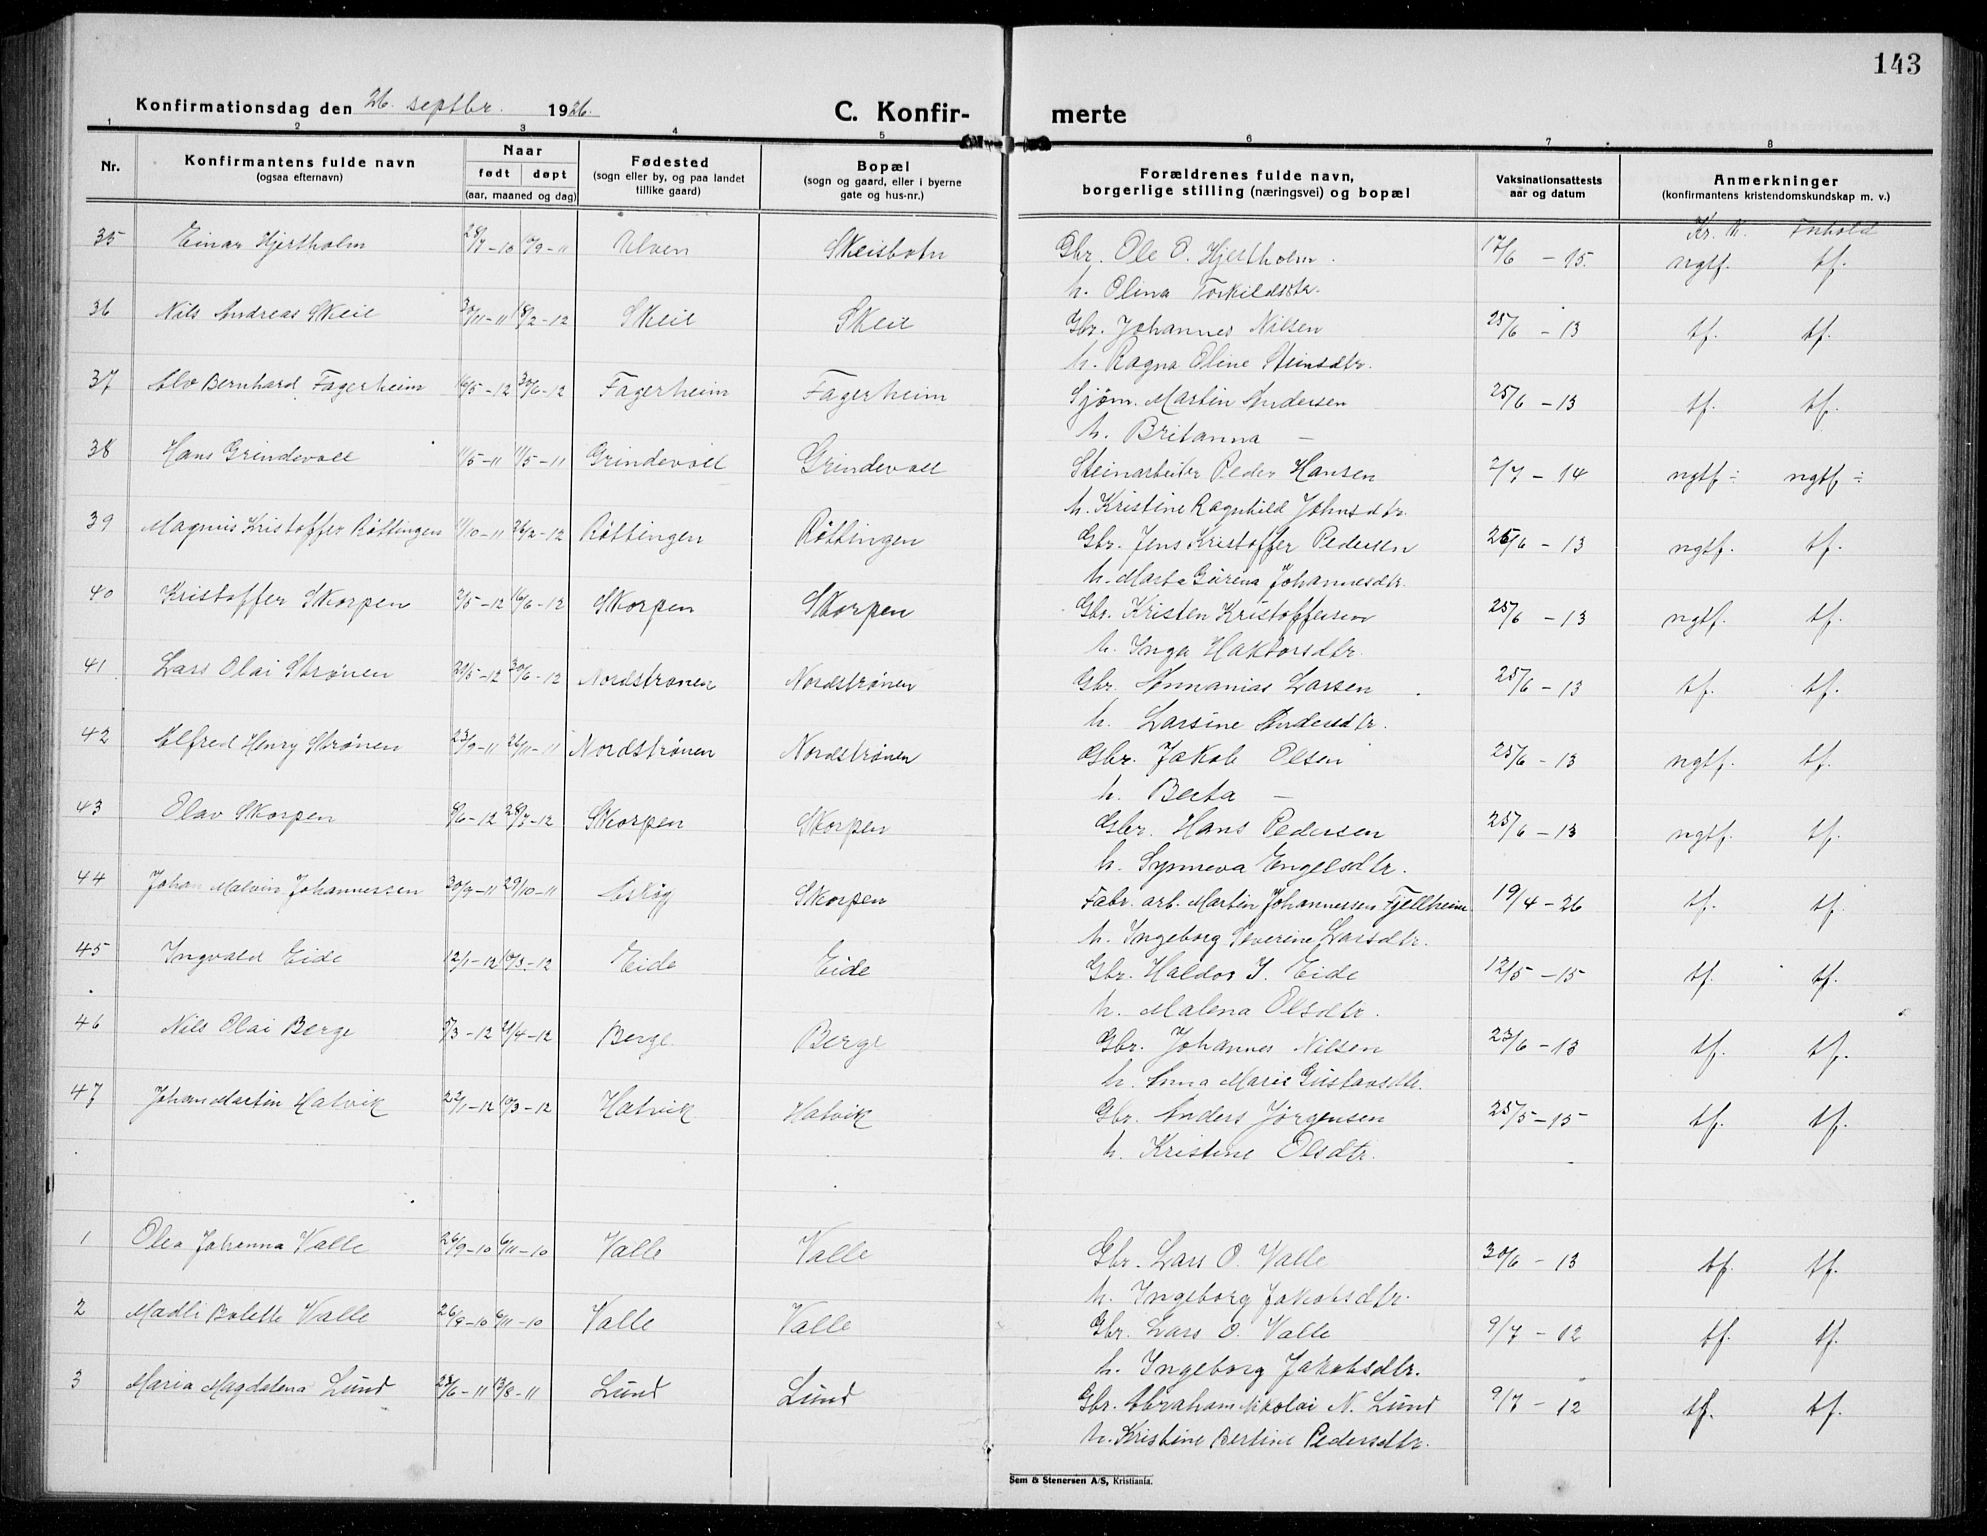 143
Konfirmationsdag den 26. septbr. 1926.
C. Konfir- merte
1 2 3 4 5 6 7 8
Nr.
Konfirmantens fulde navn
(ogsaa efternavn)
Naar
født døpt
(aar, maaned og dag)
Fødested
(sogn eller by, og paa landet
tillike gaard)
Bopæl
(sogn og gaard, eller i byerne
gate og hus-nr.)
Forældrenes fulde navn,
borgerlige stilling (næringsvei) og bopæl
Vaksinationsattests
aar og datum
Anmerkninger
(konfirmantens kristendomskundskap m. v.)
Kr. k. Forhold
35 Einar Hjertholm 28/7-10 Ulven Skeisbotn Gbr. Ole O. Hjertholm. 17/6 - 15. ngtf. tf.
h. Olina Torkildsdtr.
36 Nils Andreas Skeie 30/11-11 18/2-12 Skeie Skeie Gbr. Johannes Nilsen 25/6 - 13 tf. tf.
h. Ragna Oline Steinsdtr.
37 Alv Bernhard Fagerheim 16/5-12 30/6-12 Fagerheim Fagerheim Sjøm. Martin Andersen 25/6 - 13 tf. tf.
h. Britanna —
38 Hans Grindevoll 11/5-11 Grindevoll Grindevoll Steinarbeider Peder Hansen 2/7 - 14 ngtf ÷ ngtf ÷
h. Kristine Ragnhild Johnsdtr.
39 Magnus Kristoffer Røttingen 1/10-11 26/2-12 Røttingen Røttingen Gbr. Jens Kristoffer Pedersen 25/6 - 13 ngtf. tf.
h. Marta Gurina Johannesdtr.
40 Kristoffer Skorpen 2/5-12 16/6-12 Skorpen Skorpen Gbr. Kristen Kristoffersen 25/6 - 13 ngtf. tf.
h. Inga Haktorsdtr.
41 Lars Olai Strønen 20/5-12 30/6-12 Nordstrønen Nordstrønen Gbr. Annanias Larsen 25/6 - 13 tf. tf.
h. Larsine Andersdtr.
42 Alfred Henry Strønen 23/9-11 26/11-11 Nordstrønen Nordstrønen Gbr. Jakob Olsen 25/6 - 13 ngtf. tf.
h. Berta —
43 Olav Skorpen 8/6-12 28/7-12 Skorpen Skorpen Gbr. Hans Pedersen 25/6 - 13 ngtf. tf.
h. Synneva Engelsdtr.
44 Johan Malvin Johannessen 30/9-11 29/10-11 Askøy Skorpen Fabr. arb. Martin Johannessen Fjellheim 19/4 - 26 tf. tf.
h. Ingeborg Severine Larsdtr.
45 Ingvald Eide 12/1-12 10/3-12 Eide Eide Gbr. Haldor I. Eide 12/5 - 15 tf. tf.
h. Malena Olsdtr.
46 Nils Olai Berge 5/3-12 21/4-12 Berge Berge Gbr. Johannes Nilsen 23/6 - 13 tf. tf.
h. Anna Marie Gustavsdtr.
47 Johan Martin Hatvik 22/1-12 10/3-12 Hatvik Hatvik Gbr. Anders Jørgensen 25/5 - 15 tf. tf.
h. Kristine Olsdtr.
1 Olea Johanna Valle 26/9-10 6/11-10 Valle Valle Gbr. Lars O. Valle 30/6 - 13 tf. tf.
h. Ingeborg Jakobsdtr.
2 Madli Bolette Valle 26/9-10 6/11-10 Valle Valle Gbr. Lars O. Valle 9/7 - 12 tf. tf.
h. Ingeborg Jakobsdtr.
3 Maria Magdalena Lund 23/6-11 13/8-11 Lund Lund Gbr. Abraham Nikolai N. Lund 9/7 - 12 tf. tf.
h. Kristine Bertine Pedersdtr.
Sem & Stenersen A/S, Kristiania.